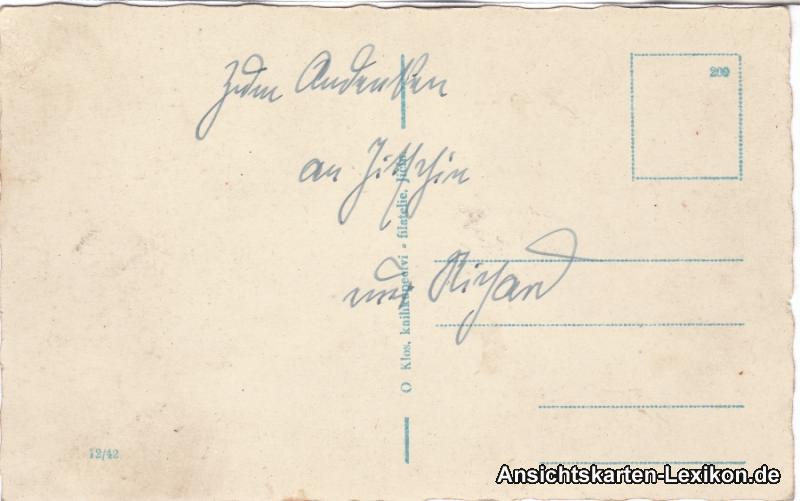 Zum Andenken
an Jitschin
und Richard
209
O Klos, knihkupectví - filatelie, Jičín
12/42
Ansichtskarten-Lexikon.de